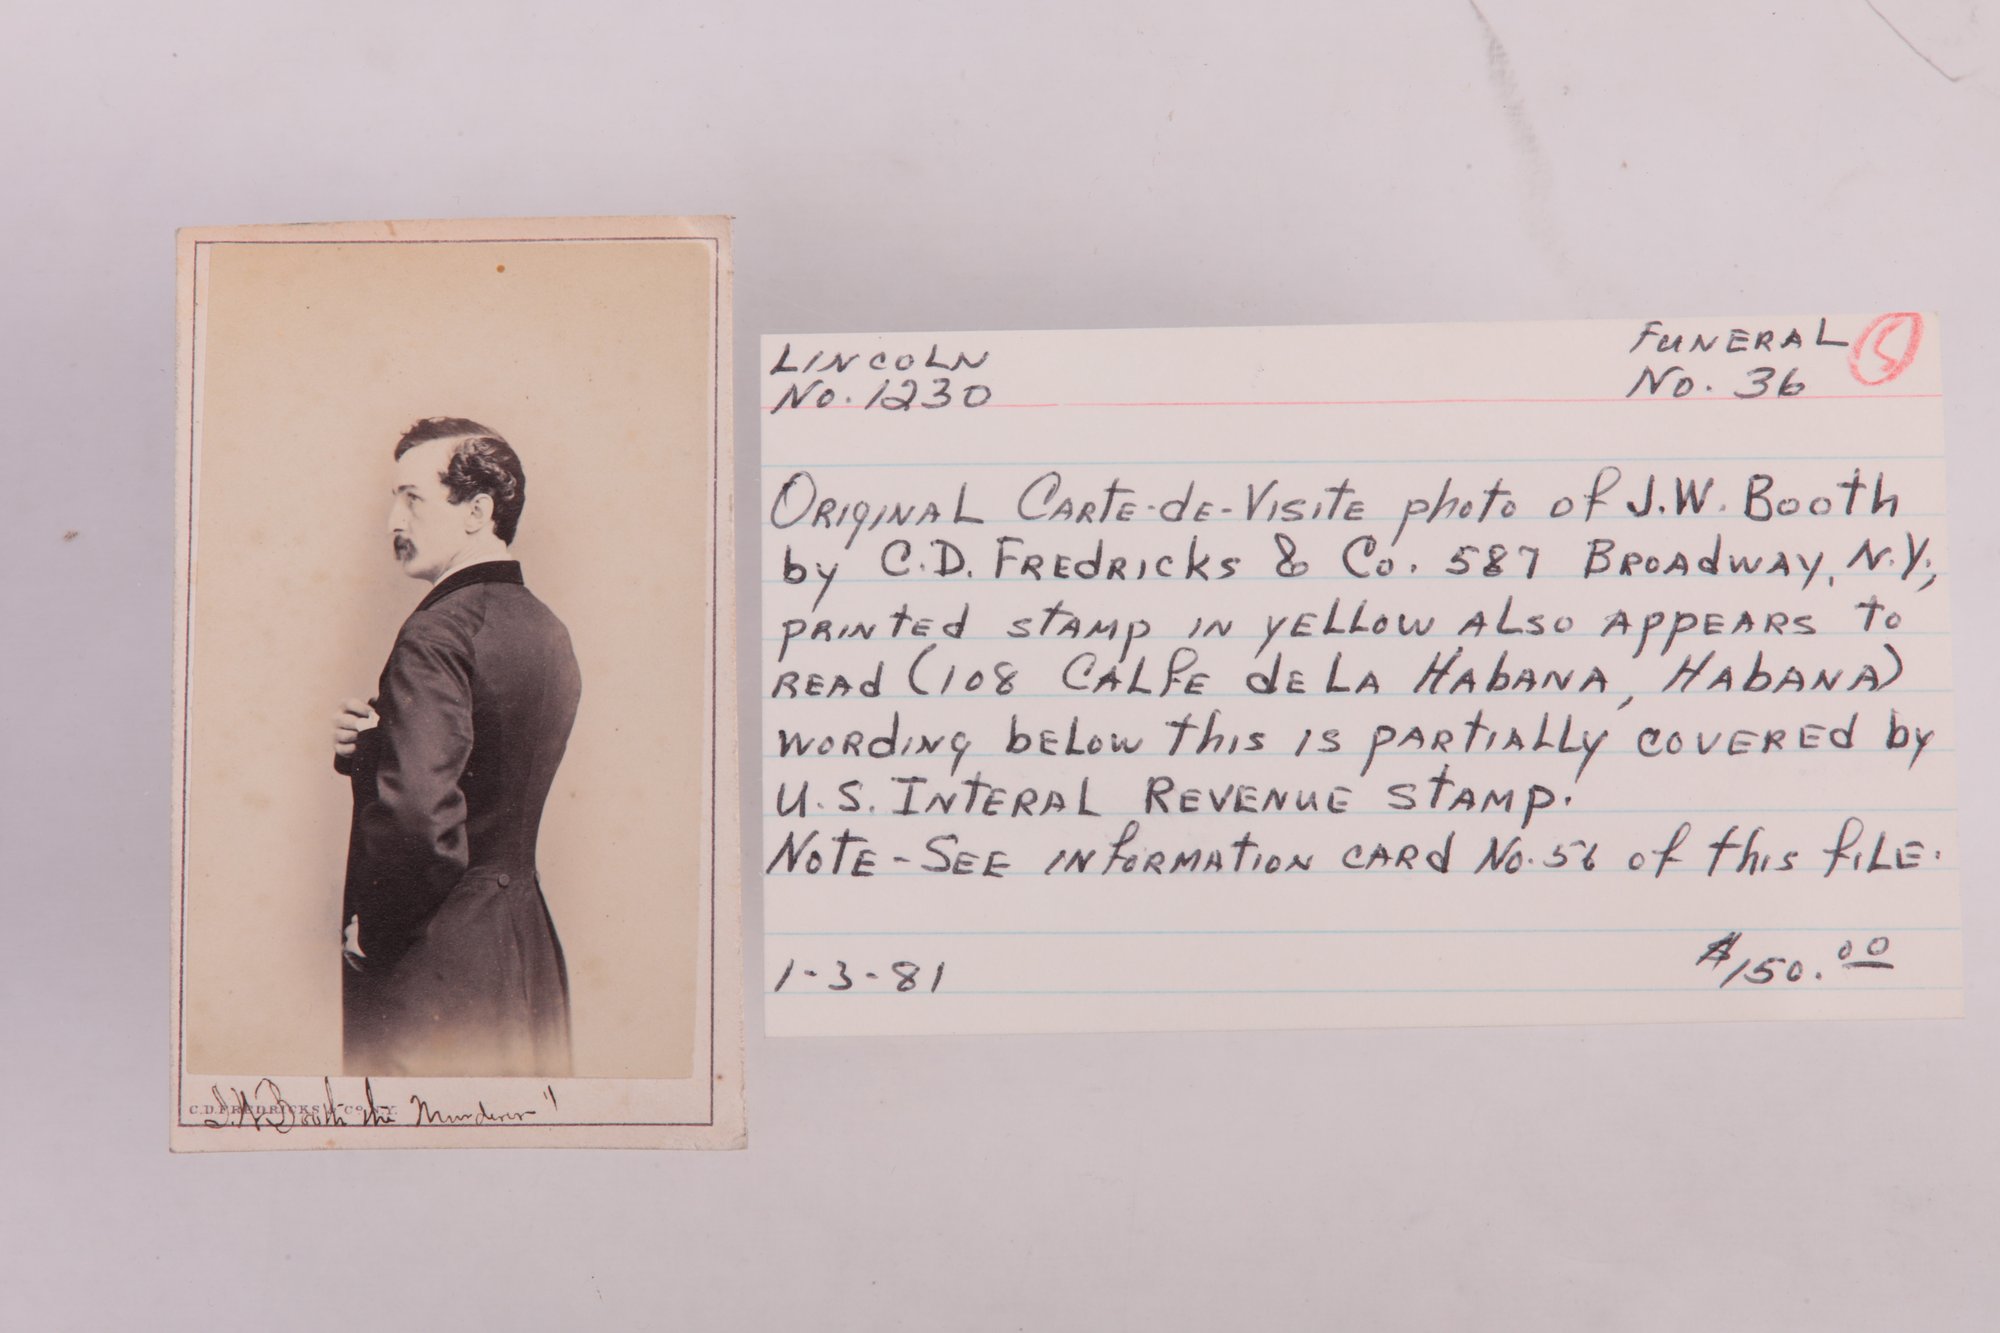 C.D. FREDRICKS & Co. N.Y.
J.W. Booth the Murderer"
LINCOLN
No. 1230
FUNERAL
No. 36
5
ORIGINAL CARTE-de-VISITE photo of J.W. Booth
by C.D. FREDRICKS & Co. 587 BROADWAY, N.Y.,
PRINTED STAMP IN YELLOW ALSO APPEARS TO
READ (108 CALFE de LA HABANA, HABANA)
WORDING BELOW this IS PARTIALLY COVERED by
U.S. INTERAL REVENUE STAMP.
NOTE-SEE INFORMATION CARD No. 56 of this FILE.
1-3-81
$150.00